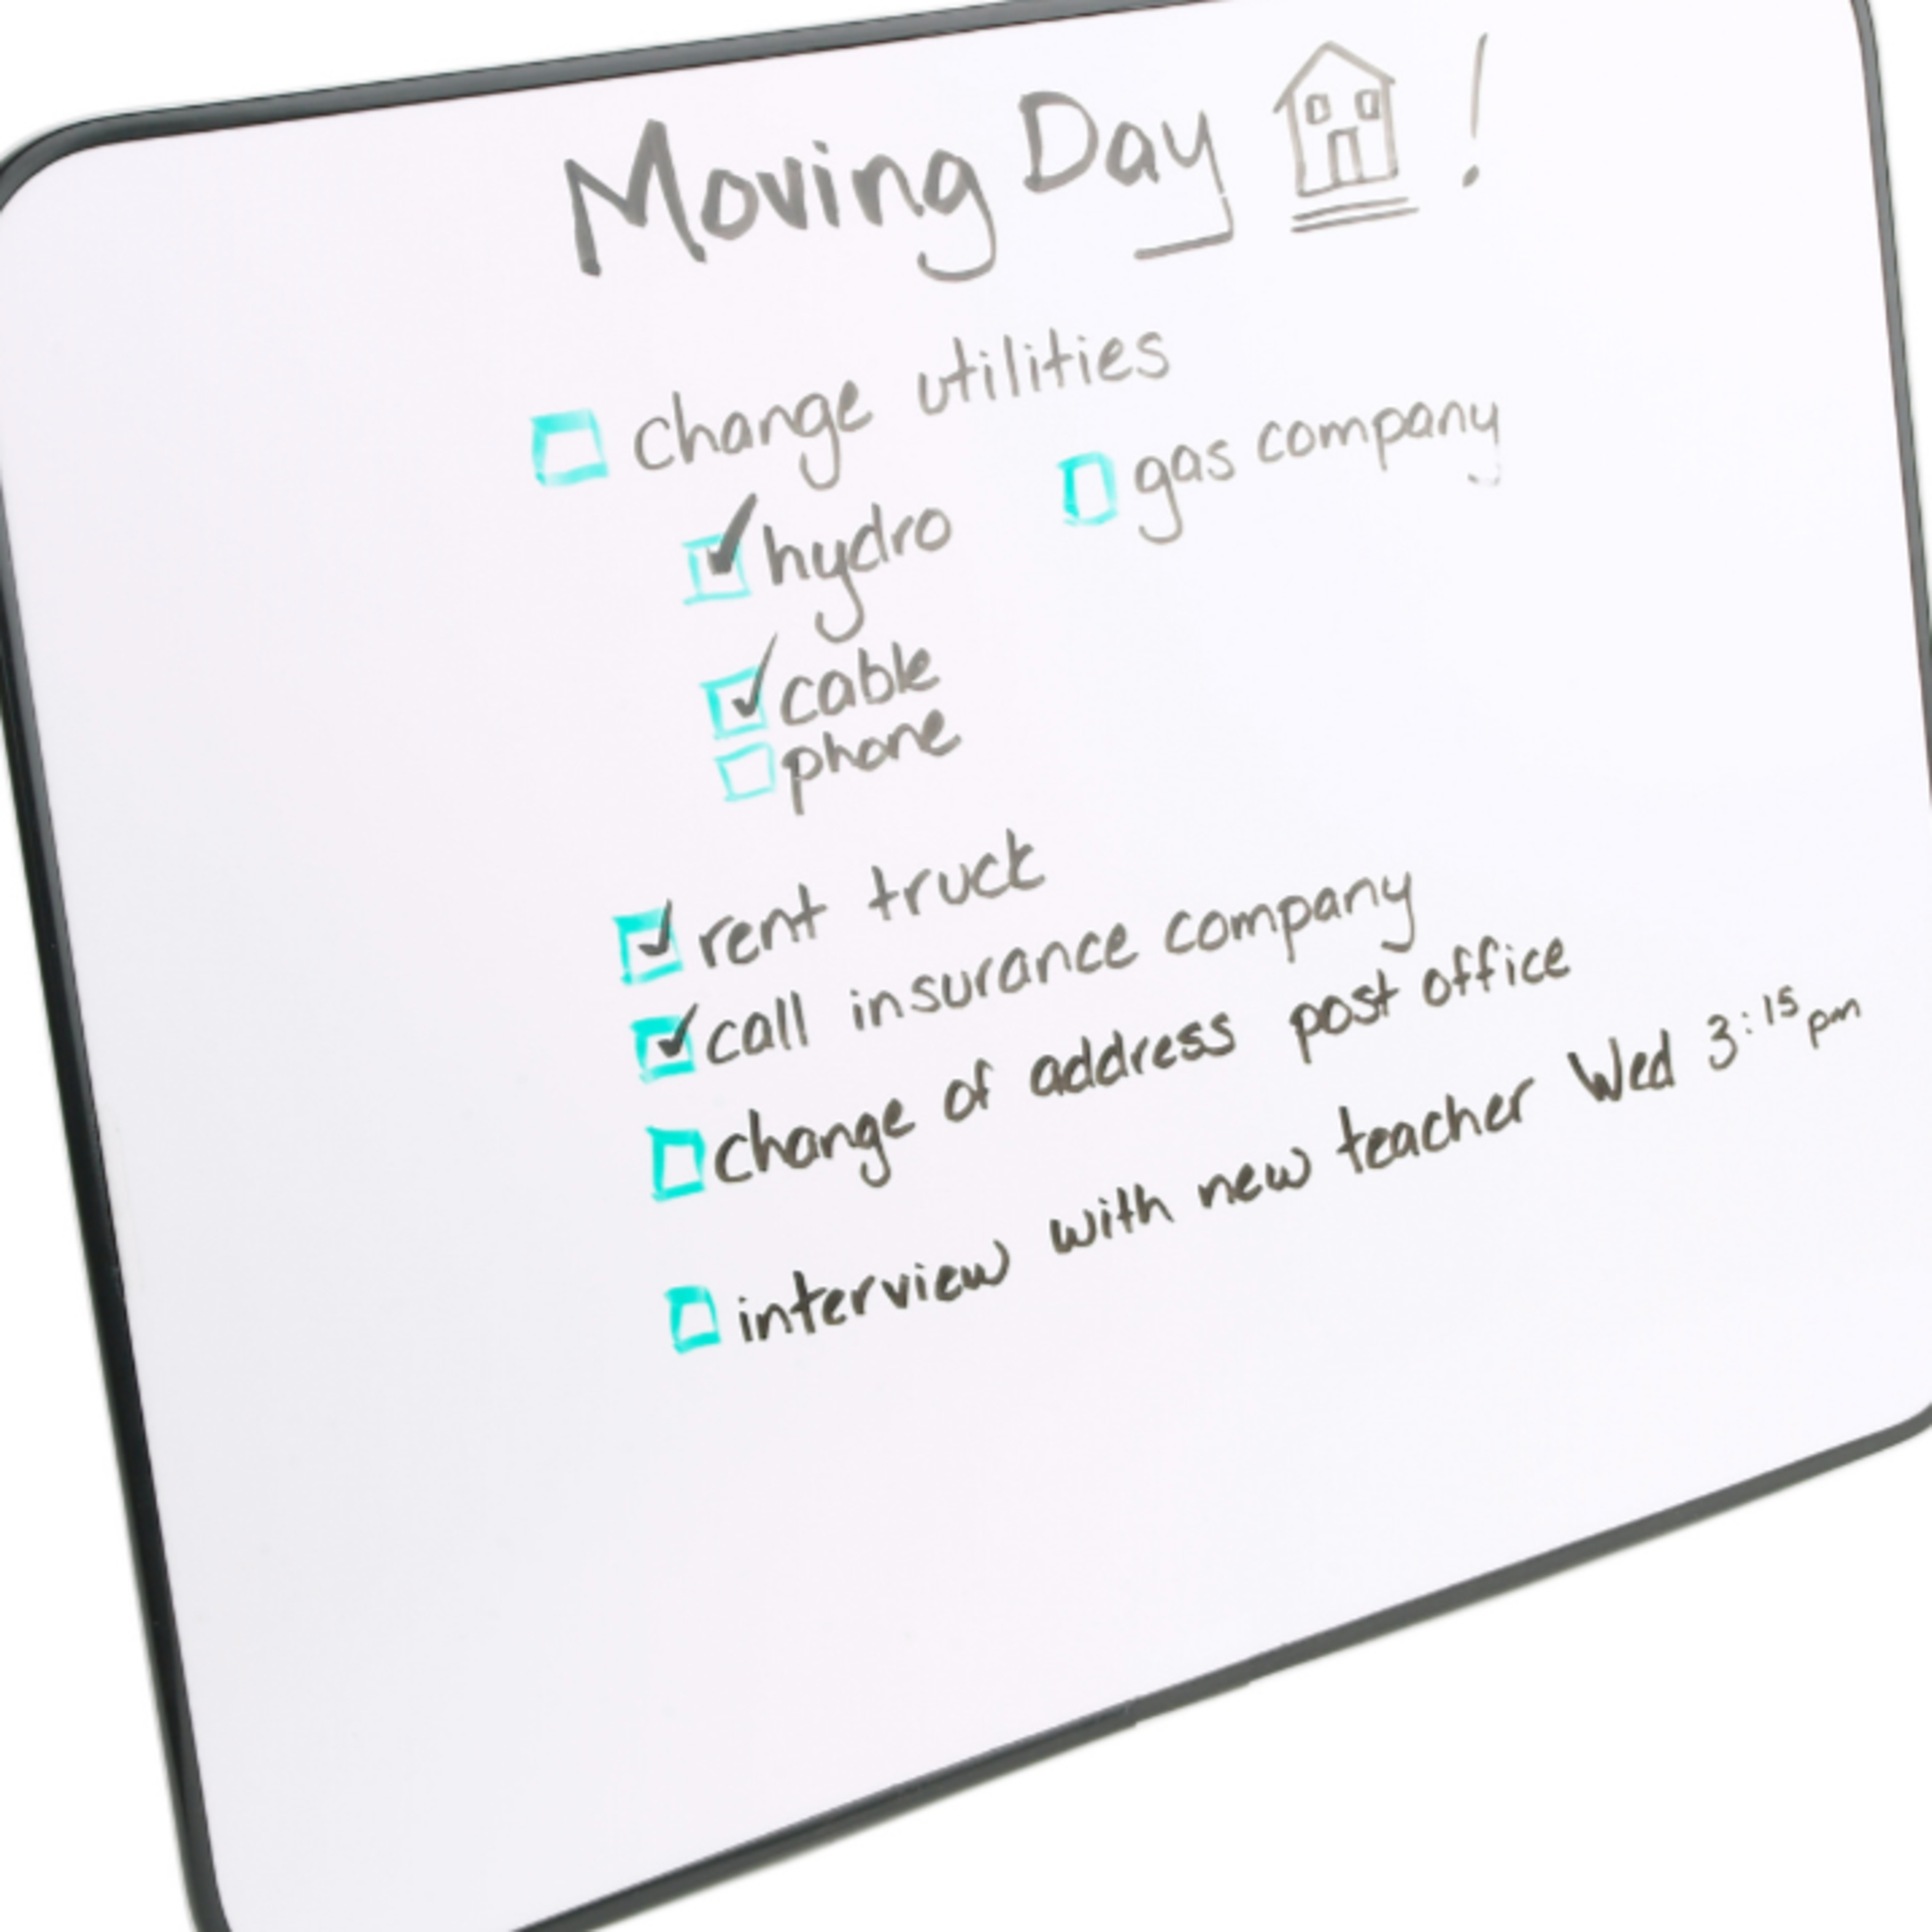 Moving Day !
change utilities
hydro
gas company
cable
phone
rent truck
call insurance company
change of address post office
interview with new teacher Wed 3:15pm